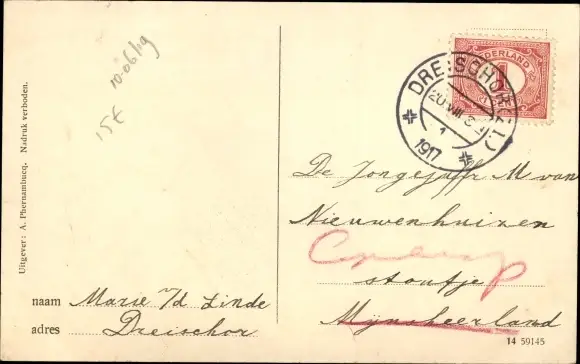 10-06/19
15£
Uitgever: A. Phernambucq. Nadruk verboden.
NEDERLAND
1
DREISCHOR (ZL.)
20 VIII
1
1917
De Jongejuffr M van
Nieuwenhuizen
stoutje
Mijnsheerland
naam Marie v/d Linde
adres Dreischor
14 59145